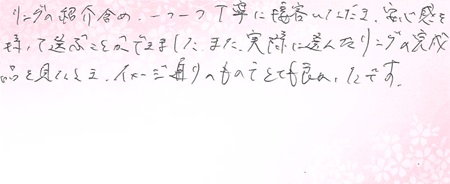 リングの紹介含め、一つ一つ丁寧に接客いただき、安心感を
持って選ぶことができました。また、実際に選んだリングの完成
品を見たときも、イメージ通りのものでとても良かったです。